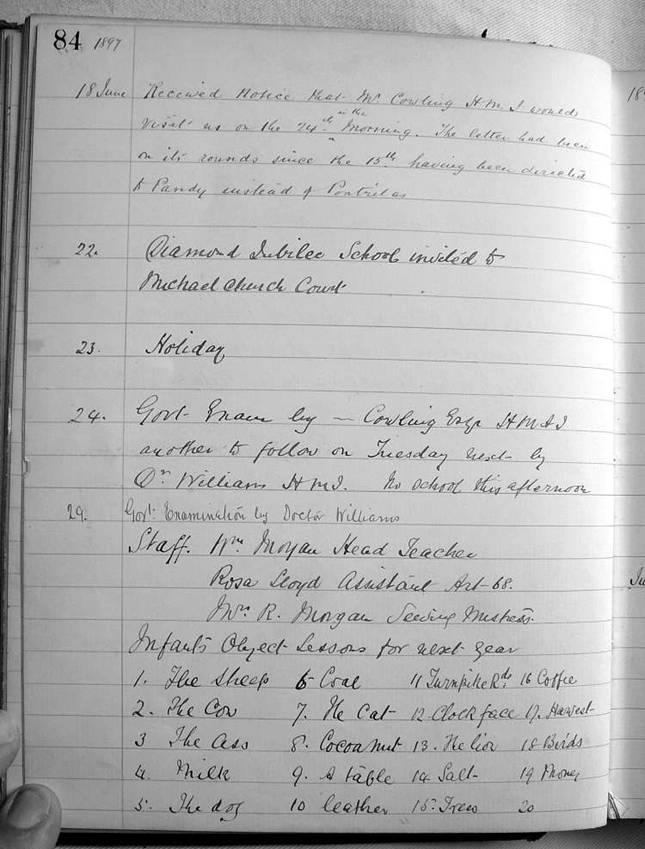 84 1897
18 June Received Notice that Mr Cowling H.M.I would
visit us on the 24th in the Morning. The letter had been
on its rounds since the 15th having been directed
to Pandy instead of Pontrilas
22. Diamond Jubilee School invited to
Michaelchurch Court
23. Holiday
24. Govt Exam by — Cowling Esqr H M I
another to follow on Tuesday next by
Dr Williams H M I. No school this afternoon
29. Govt Examination by Doctor Williams
Staff. Wm Morgan Head Teacher
Rosa Lloyd Assistant Art 68.
Mrs R. Morgan Sewing Mistress.
Infants Object Lessons for next year
1. The Sheep 6 Coal 11 Turnpike Rds 16 Coffee
2. The Cow 7. The Cat 12 Clock face 17. Harvest
3 The Ass 8. Cocoanut 13. The lion 18 Birds
4. Milk 9. A table 14 Salt 19
5. The dog 10 leather 15. Trees 20